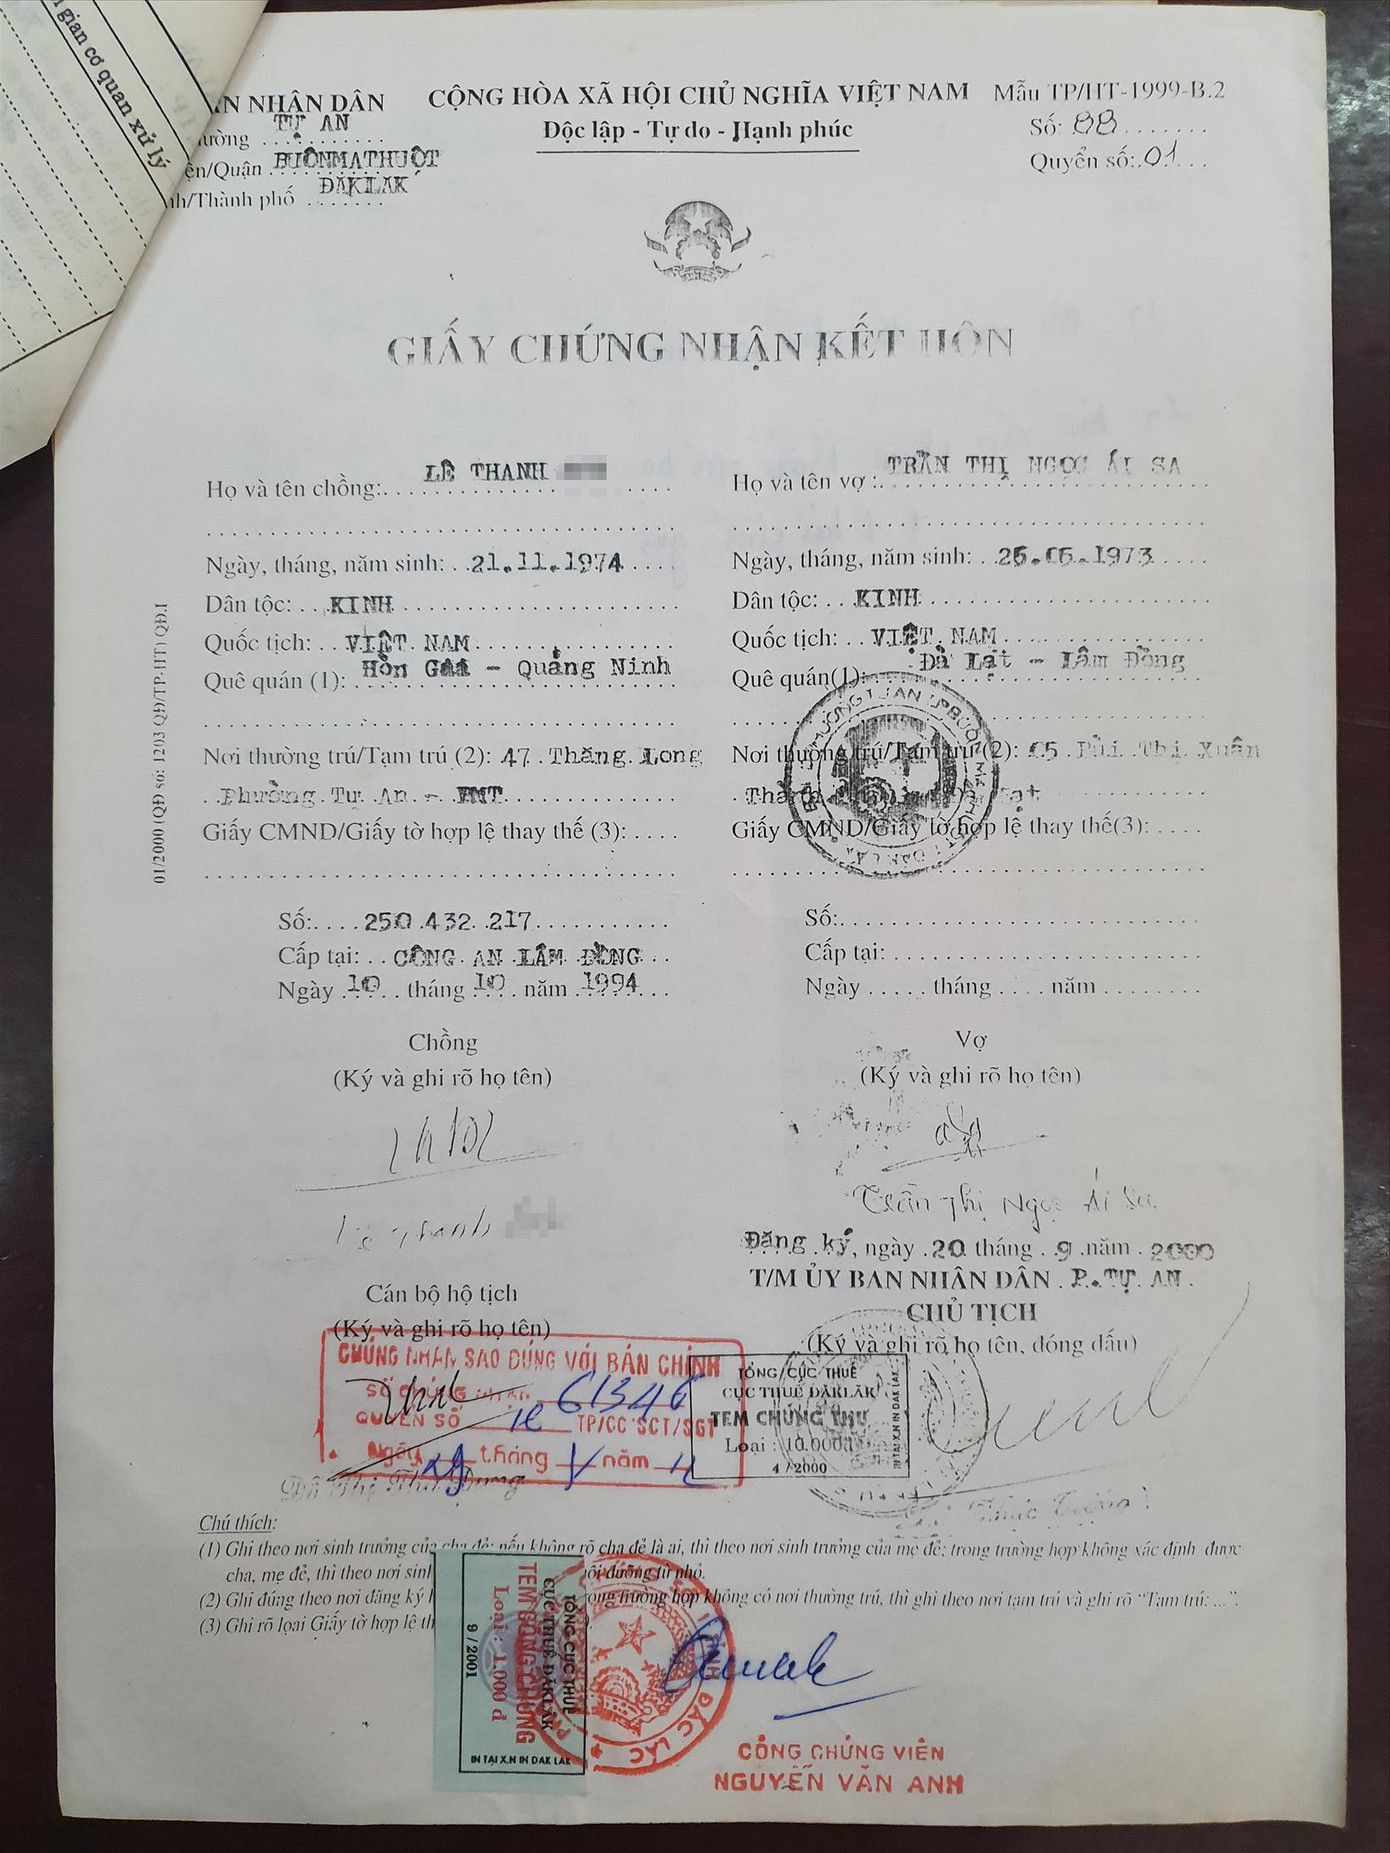 gian cơ quan xử lý
ÂN NHÂN DÂN
CỘNG HÒA XÃ HỘI CHỦ NGHĨA VIỆT NAM
Mẫu TP/HT-1999-B.2
ường TỰ AN
Độc lập - Tự do - Hạnh phúc
Số: 88
ện/Quận BUÔNMATHUỘT
Quyển số: 01
nh/Thành phố ĐAKLAK
GIẤY CHỨNG NHẬN KẾT HÔN
Họ và tên chồng: LÊ THANH
Họ và tên vợ : TRẦN THỊ NGỌC ÁI SA
Ngày, tháng, năm sinh: 21.11.1974
Ngày, tháng, năm sinh: 25.05.1973
Dân tộc: KINH
Dân tộc: KINH
Quốc tịch: VIỆT NAM
Quốc tịch: VIỆT NAM
Quê quán (1): Hồn Gai - Quảng Ninh
Quê quán(1): Đà Lạt - Lâm Đồng
Nơi thường trú/Tạm trú (2): 47 Thăng Long
Nơi thường trú/Tạm trú (2): 15 Bùi Thị Xuân
Phường Tự An - BMT
Lạt
Giấy CMND/Giấy tờ hợp lệ thay thế (3):
Giấy CMND/Giấy tờ hợp lệ thay thế(3):
01/2000 (QĐ số: 1203 QĐ/TP-HT) QĐ.1
Số: 250.432.217
Số:
Cấp tại: CÔNG AN LÂM ĐỒNG
Cấp tại:
Ngày 10 tháng 10 năm 1994
Ngày tháng năm
Chồng
Vợ
(Ký và ghi rõ họ tên)
(Ký và ghi rõ họ tên)
Lê Thanh
Trần Thị Ngọc Ái Sa
Đăng ký, ngày 20 tháng 9 năm 2000
T/M ỦY BAN NHÂN DÂN P. TỰ AN
Cán bộ hộ tịch
CHỦ TỊCH
(Ký và ghi rõ họ tên)
(Ký và ghi rõ họ tên, đóng dấu)
CHỨNG NHẬN SAO ĐÚNG VỚI BẢN CHÍNH
SỐ CHỨNG NHẬN 61346
QUYỂN SỐ TP/CC SCT/SGT
Ngày tháng năm
TỔNG CỤC THUẾ
CỤC THUẾ ĐĂKLĂK
TEM CHỨNG THƯ
Loại : 10.000đ
4 / 2000
IN TẠI X.N IN DAK LAK
Chú thích:
(1) Ghi theo nơi sinh trưởng của cha đẻ; nếu không rõ cha đẻ là ai, thì theo nơi sinh trưởng của mẹ đẻ; trong trường hợp không xác định được
cha, mẹ đẻ, thì theo nơi sinh ôi dưỡng từ nhỏ.
(2) Ghi đúng theo nơi đăng ký ong trường hợp không có nơi thường trú, thì ghi theo nơi tạm trú và ghi rõ "Tạm trú: ...".
(3) Ghi rõ loại Giấy tờ hợp lệ th
TỔNG CỤC THUẾ
CỤC THUẾ ĐĂKLĂK
TEM CÔNG CHỨNG
Loại : 1.000 đ
9 / 2001
IN TẠI X.N IN DAK LAK
ĐẮC LẮC
CÔNG CHỨNG VIÊN
NGUYỄN VĂN ANH